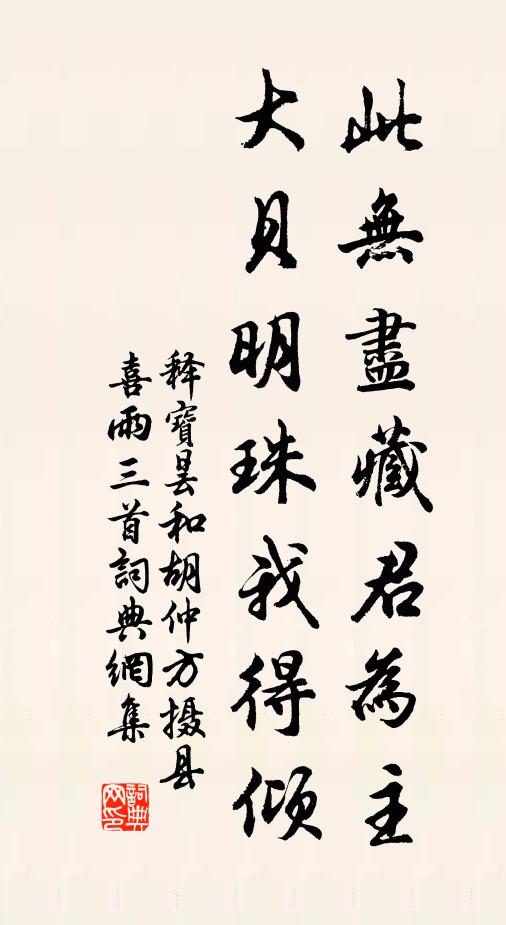 此無盡藏君為主
大貝明珠我得傾
释寶昙和胡仲方摄县
喜雨三首詞典網集
詞典網印